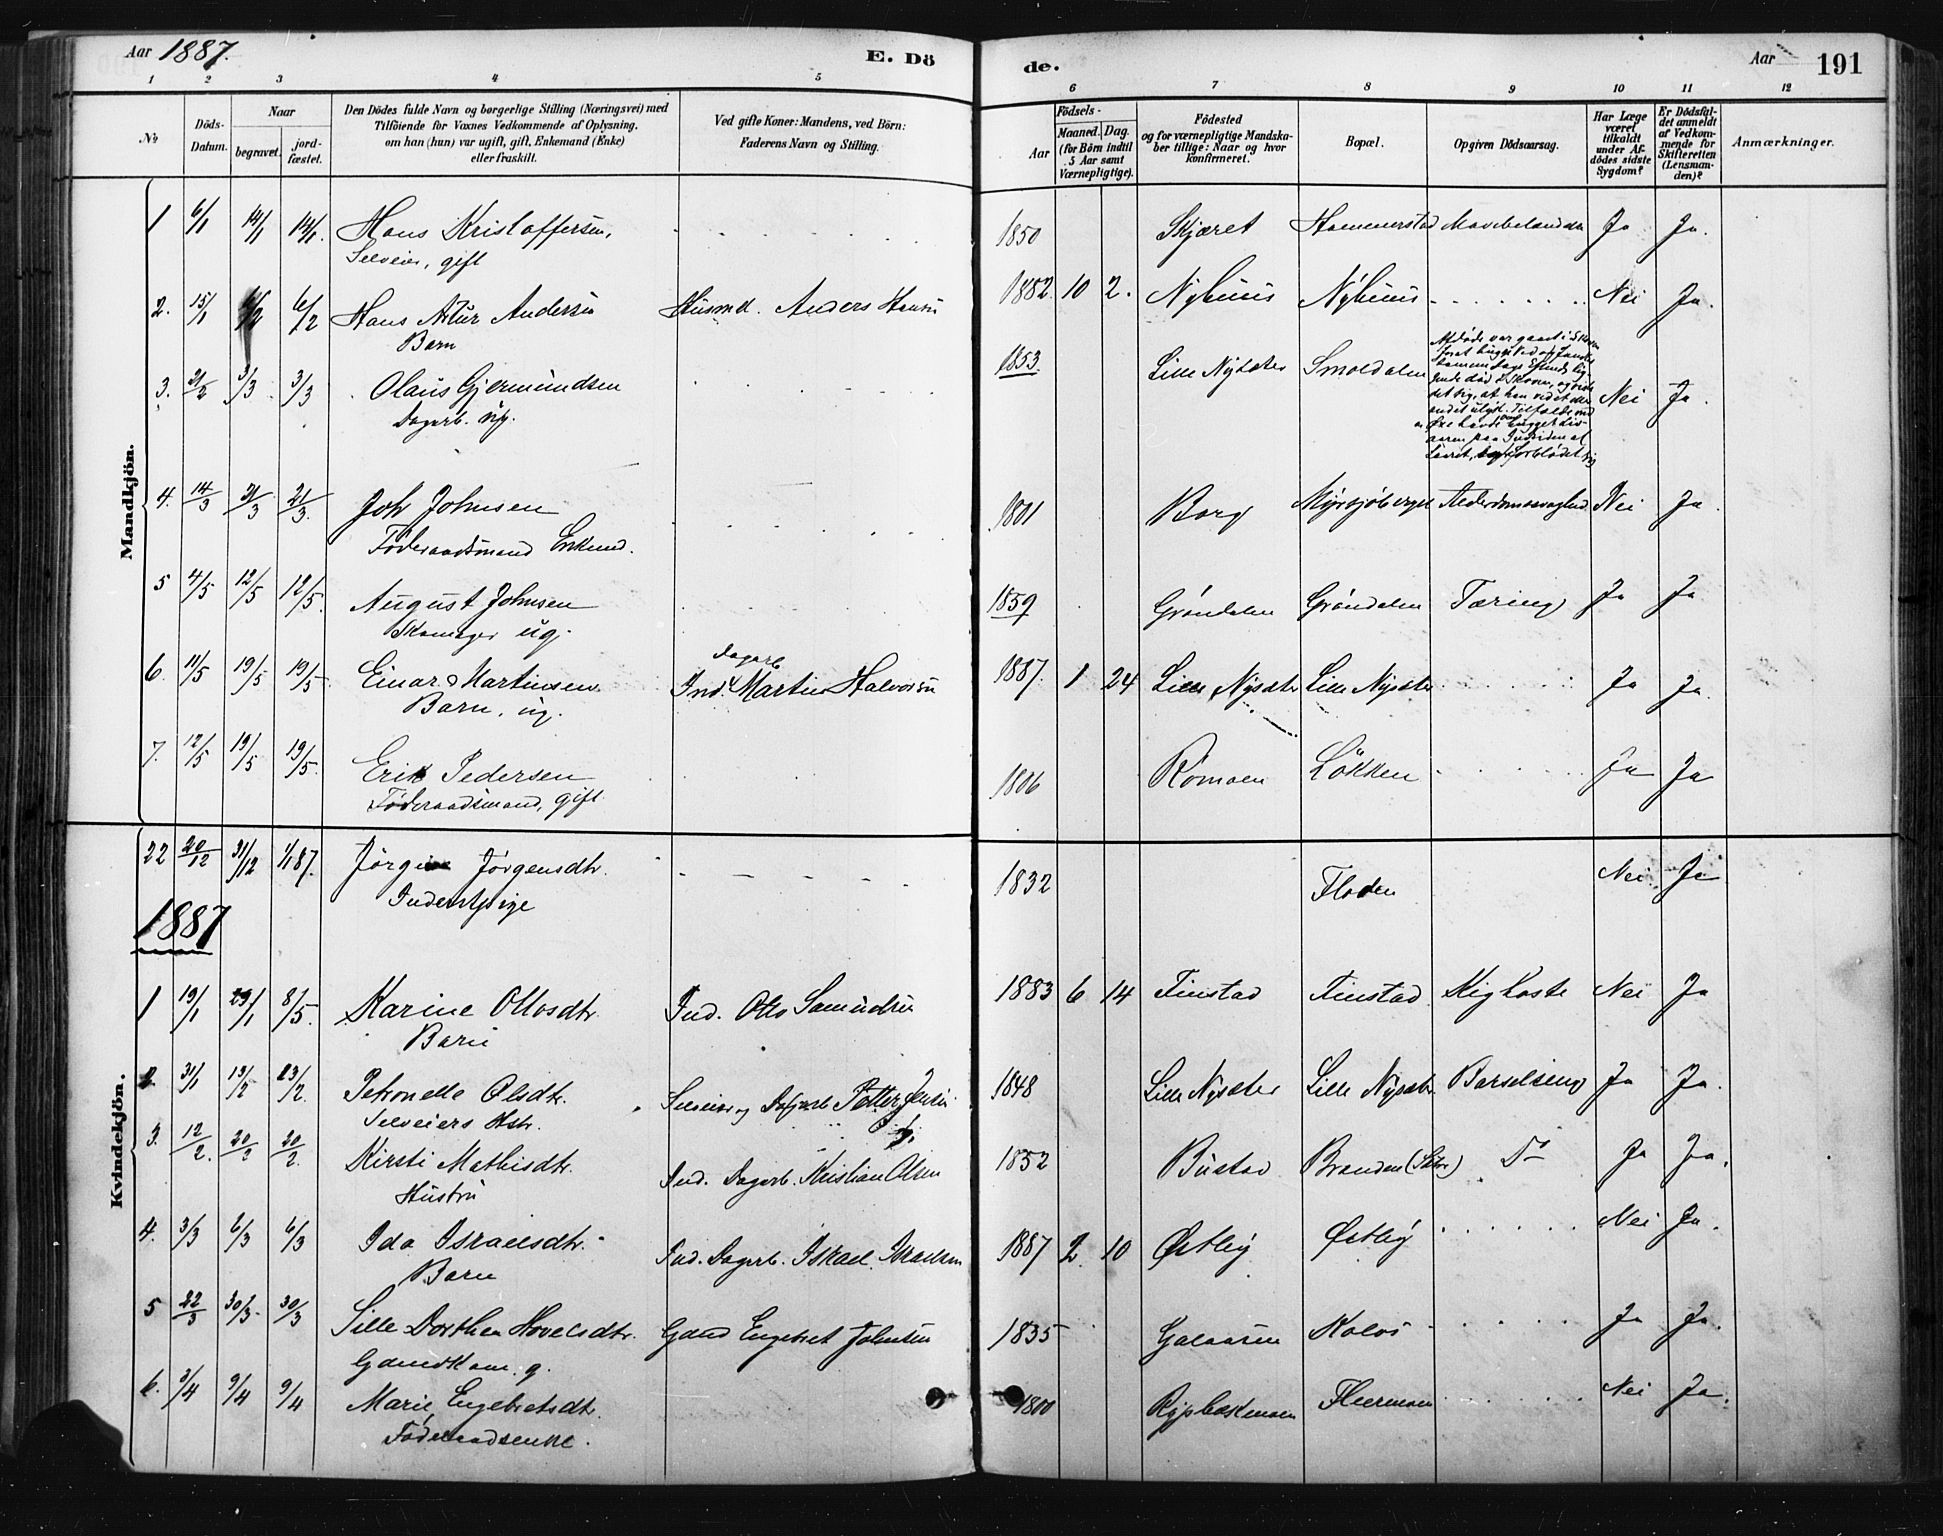 Aar 1887. E. Dö
de. Aar 191
1 2 3 4 5 6 7 8 9 10 11 12
No.
Döds-Datum.
Naar
begravet.
jord-fæstet.
Den Dödes fulde Navn og borgerlige Stilling (Næringsvei) med
Tilföiende for Voxnes Vedkommende af Oplysning.
om han (hun) var ugift, gift, Enkemand (Enke)
eller fraskilt.
Ved gifte Koner: Mandens, ved Börn:
Faderens Navn og Stilling.
Födsels-
Aar
Maaned. Dag.
(for Börn indtil
5 Aar samt
Værnepligtige).
Födested
og for værnepligtige Mandska-
ber tillige: Naar og hvor
konfirmeret.
Bopæl.
Opgiven Dödsaarsag.
Har Læge
været
tilkaldt
under Af-
dödes sidste
Sygdom?
Er Dödsfal-
det anmeldt
af Vedkom-
mende for
Skifteretten
(Lensman-
den)?
Anmærkninger.
Mandkjön.
1 6/1 14/1 14/1. Hans Kristoffersen, 1850 Skjæret Hammerstad Ja Ja.
Selveier, gift
2. 15/1 6/2 6/2 Hans Artur Andersen Husmd. Anders Hansen 1882 10 2. Nyhuus Nyhuus Nei Ja.
Barn
3. 21/2 3/3 3/3 Olaus Gjermundsen 1853. Lille Nysæter Smoldalen Nei Ja.
Dagarb. ug.
Afdøde var gaaet i Skoven
4. 14/3 21/3 21/3. Joh Johnsen 1801 Borg Myrsjöberget Alderdomssvaghed Nei Ja.
Föderaadsmand Enkemd.
5 4/5 12/5 12/5. August Johnsen 1859 Gröndalen Gröndalen Tæring Ja Ja
Skomager ug.
6. 11/5 19/5 19/5. Einar Martinsen Dagarb. Ind. Martin Halvorsen 1887. 1 24 Lille Nysæter Lille Nysæter Ja Ja.
Barn, ug.
7. 12/5 19/5 19/5. Erik Pedersen 1806 Romoen Lökken Ja Ja
Föderaadsmand, gift.
Kvindekjön.
22 20/12 31/12 1/1 87. Jörgensdtr. 1832 Floden Nei Ja
1887
1 19/1 29/1 8/5. Karine Ottosdtr. Ind. Otto Samuelsen 1883 6 14 Finstad Finstad Kighoste Nei Ja
Barn
2. 31/1 13/2 13/2. Petronelle Olsdtr. Selveier og Dagarb. Petter Jensen 1848 Lille Nysæter Lille Nysæter Barselseng Ja Ja.
Selveiers Hstr.
3. 12/2. 20/2 20/2 Kirsti Mathisdtr. Ind. Dagarb. Kristian Olsen 1852 Bustad Branden (Sætre) Do Ja Ja.
Hustru
4. 3/3 6/3 6/3 Ida Israelsdtr. Ind. Dagarb. Israel Israelsen 1887 2 10 Østby Østby Nei Ja.
Barn
5 22/3 30/3. 30/3 Sille Dorthea Hovelsdtr. Gdmd Engebret Johnsen 1835 Galaasen Kolos Ja Ja.
Gdmdkone. g.
6. 3/4 9/4 9/4 Marie Engebretsdtr. 1800 Flermoen Nei Ja.
Föderaadsenke.